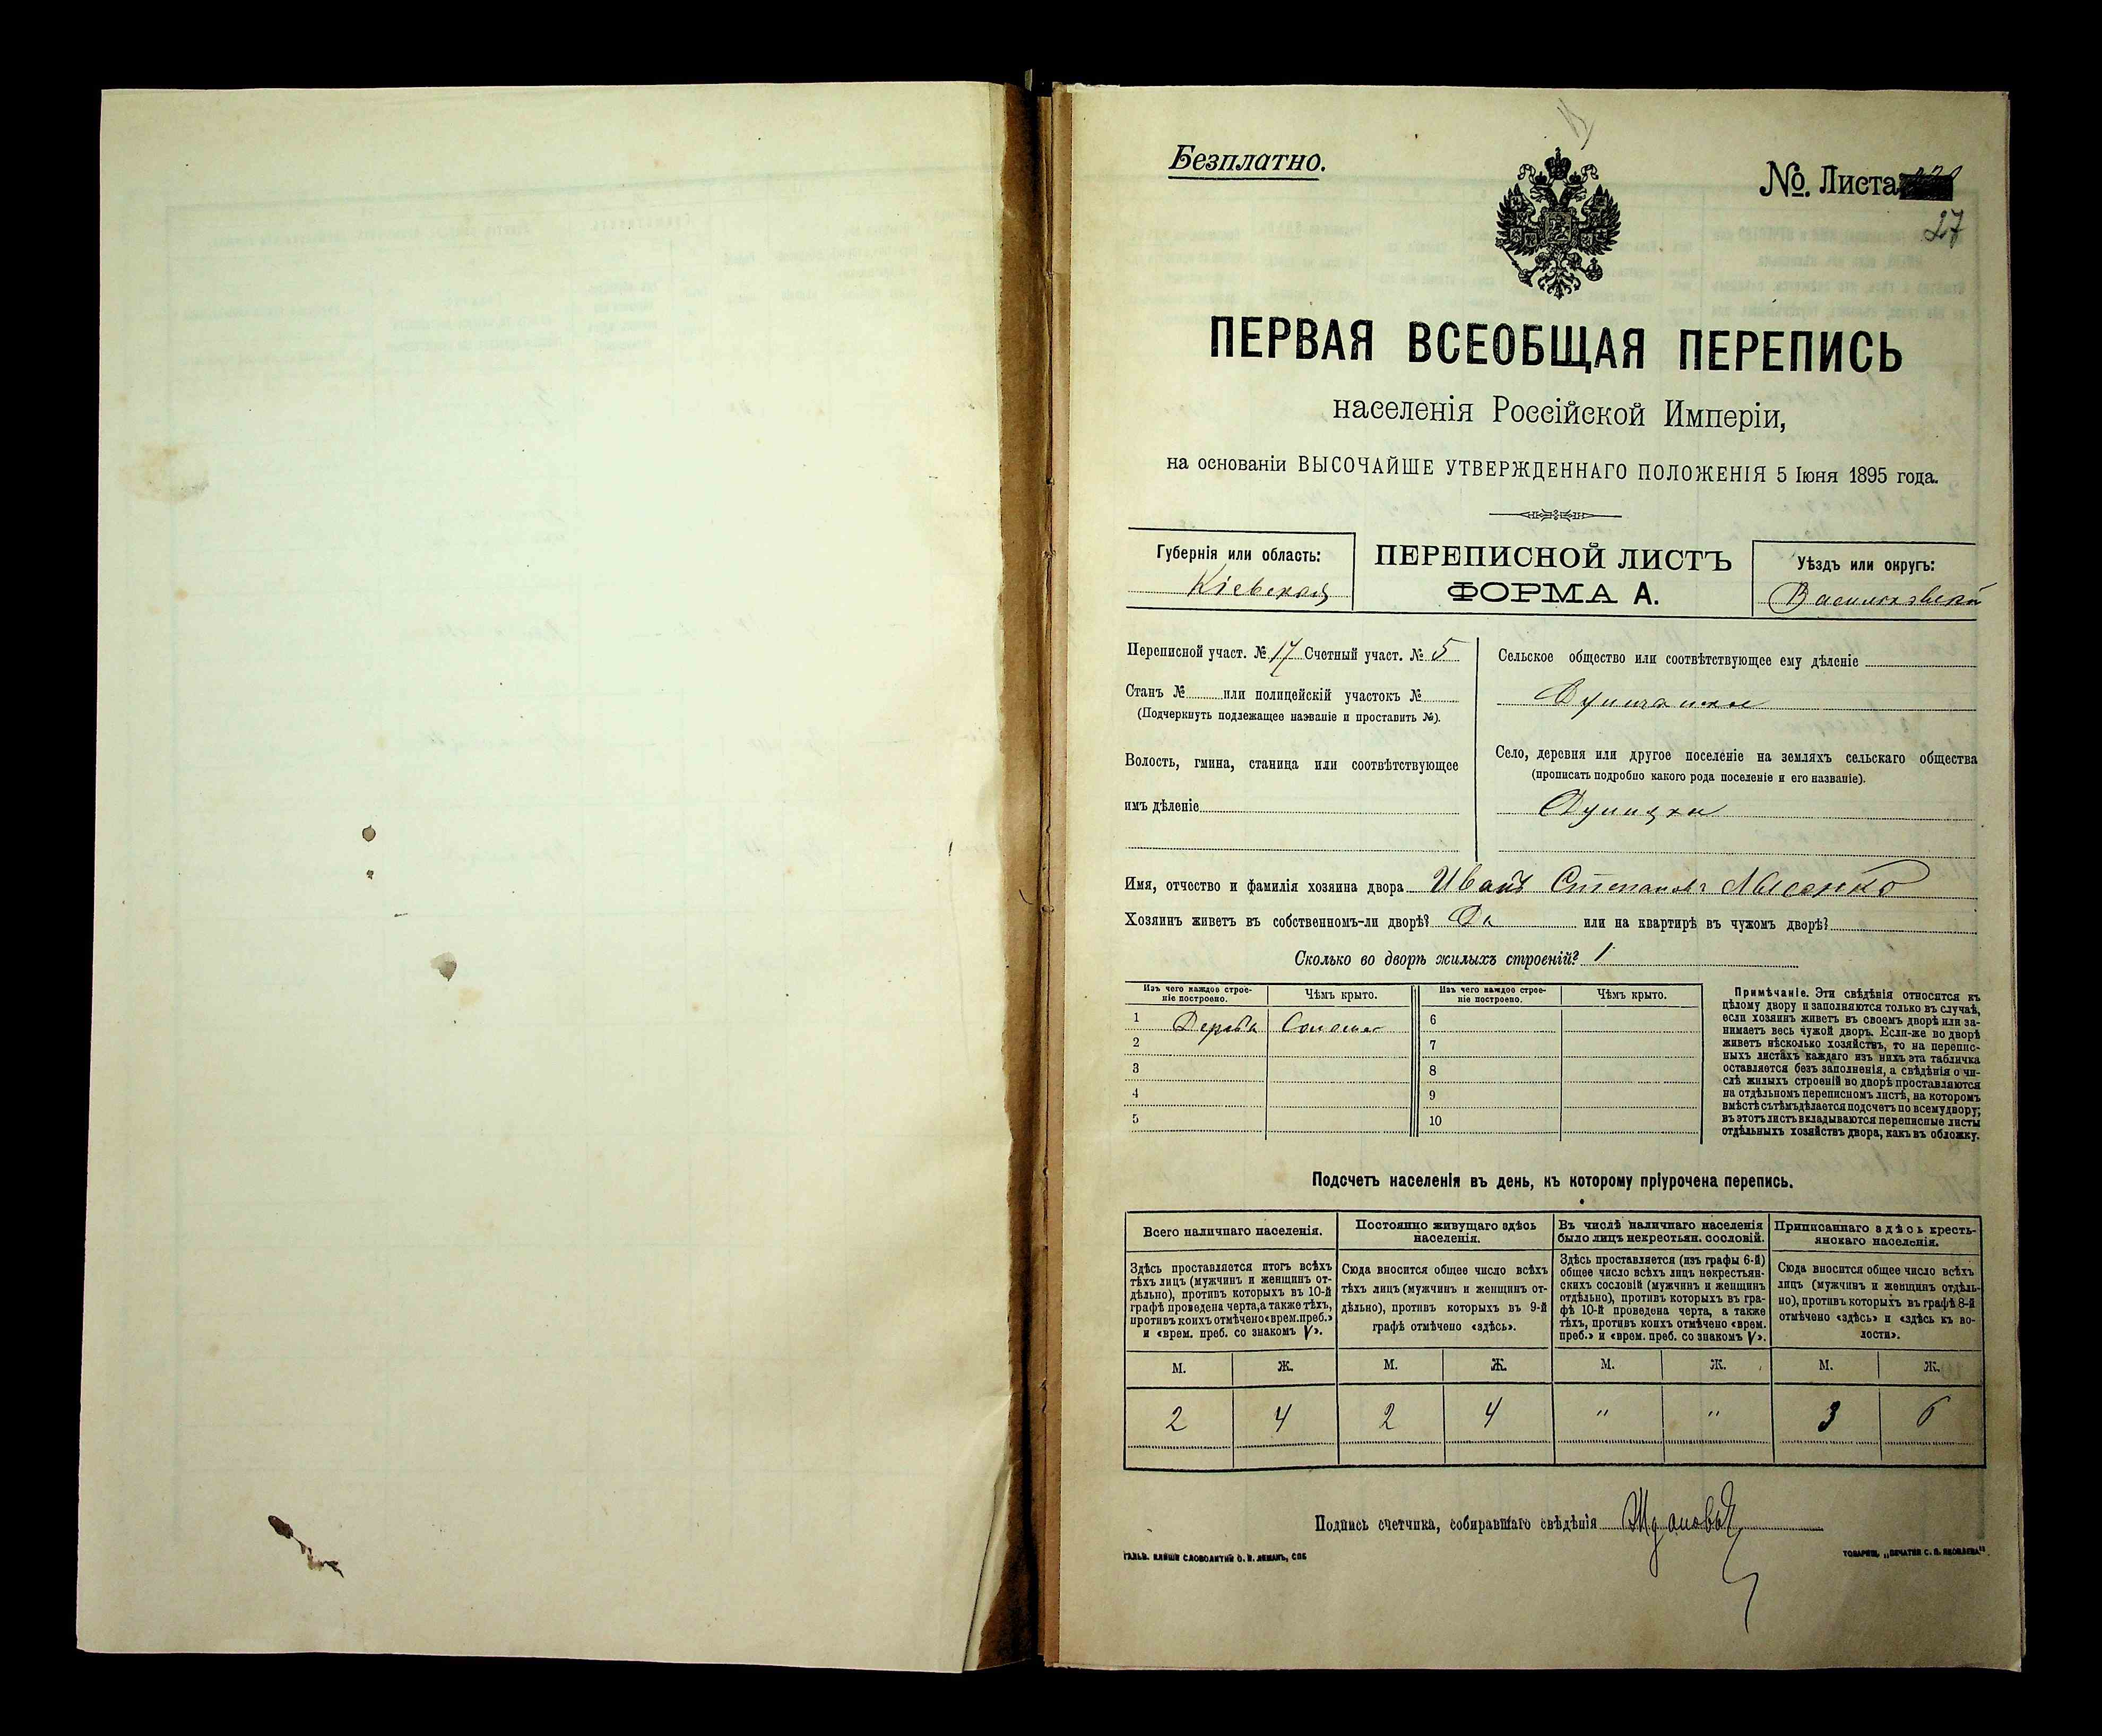 Безплатно.
№. Листа
27
ПЕРВАЯ ВСЕОБЩАЯ ПЕРЕПИСЬ
населенія Россійской Имперіи,
на основаніи ВЫСОЧАЙШЕ УТВЕРЖДЕННАГО ПОЛОЖЕНІЯ 5 Іюня 1895 года.
Губернія или область:
Кіевская
ПЕРЕПИСНОЙ ЛИСТЪ
ФОРМА А.
Уѣздъ или округъ:
Васильковскій
Переписной участ. № 17 Счетный участ. № 5
Станъ № или полицейскій участокъ №
(Подчеркнуть подлежащее названіе и проставить №).
Волость, гмина, станица или соотвѣтствующее
имъ дѣленіе
Сельское общество или соотвѣтствующее ему дѣленіе
Село, деревня или другое поселеніе на земляхъ сельскаго общества
(прописать подробно какого рода поселеніе и его названіе).
Имя, отчество и фамилія хозяина двора Иванъ Степановъ
Хозяинъ живетъ въ собственномъ-ли дворѣ? Да или на квартирѣ въ чужомъ дворѣ?
Сколько во дворѣ жилыхъ строеній? 1
Изъ чего каждое строе-
ніе построено.
Чѣмъ крыто.
Изъ чего каждое строе-
ніе построено.
Чѣмъ крыто.
1 Дерева Солома 6
2 7
3 8
4 9
5 10
Примѣчаніе. Эти свѣдѣнія относятся къ
цѣлому двору и заполняются только въ случаѣ,
если хозяинъ живетъ въ своемъ дворѣ или за-
нимаетъ весь чужой дворъ. Если-же во дворѣ
живетъ нѣсколько хозяйствъ, то на перепис-
ныхъ листахъ каждаго изъ нихъ эта табличка
оставляется безъ заполненія, а свѣдѣнія о чи-
слѣ жилыхъ строеній во дворѣ проставляются
на отдѣльномъ переписномъ листѣ, на которомъ
вмѣстѣ съ тѣмъ дѣлается подсчетъ по всему двору;
въ этотъ листъ вкладываются переписные листы
отдѣльныхъ хозяйствъ двора, какъ въ обложку.
Подсчетъ населенія въ день, къ которому пріурочена перепись.
Всего наличнаго населенія.
Здѣсь проставляется итогъ всѣхъ
тѣхъ лицъ (мужчинъ и женщинъ от-
дѣльно), противъ которыхъ въ 10-й
графѣ проведена черта, а также тѣхъ,
противъ коихъ отмѣчено «врем. преб.»
и «врем. преб. со знакомъ V».
Постоянно живущаго здѣсь
населенія.
Сюда вносится общее число всѣхъ
тѣхъ лицъ (мужчинъ и женщинъ от-
дѣльно), противъ которыхъ въ 9-й
графѣ отмѣчено «здѣсь».
Въ числѣ наличнаго населенія
было лицъ некрестьян. сословій.
Здѣсь проставляется (изъ графы 6-й)
общее число всѣхъ лицъ некрестьян-
скихъ сословій (мужчинъ и женщинъ
отдѣльно), противъ которыхъ въ гра-
фѣ 10-й проведена черта, а также
тѣхъ, противъ коихъ отмѣчено «врем.
преб.» и «врем. преб. со знакомъ V».
Приписаннаго здѣсь кресть-
янскаго населенія.
Сюда вносится общее число всѣхъ
лицъ (мужчинъ и женщинъ отдѣль-
но), противъ которыхъ въ графѣ 8-й
отмѣчено «здѣсь» и «здѣсь къ во-
лости».
М. Ж. М. Ж. М. Ж. М. Ж.
2 4 2 4 " " 3 6
Подпись счетчика, собиравшаго свѣдѣнія
ГАЛЬВ. КЛИШЕ СЛОВОЛИТНИ О. И. ЛЕМАНЪ, СПБ
ТОВАРИЩ. „ПЕЧАТНЯ С. П. ЯКОВЛЕВА"